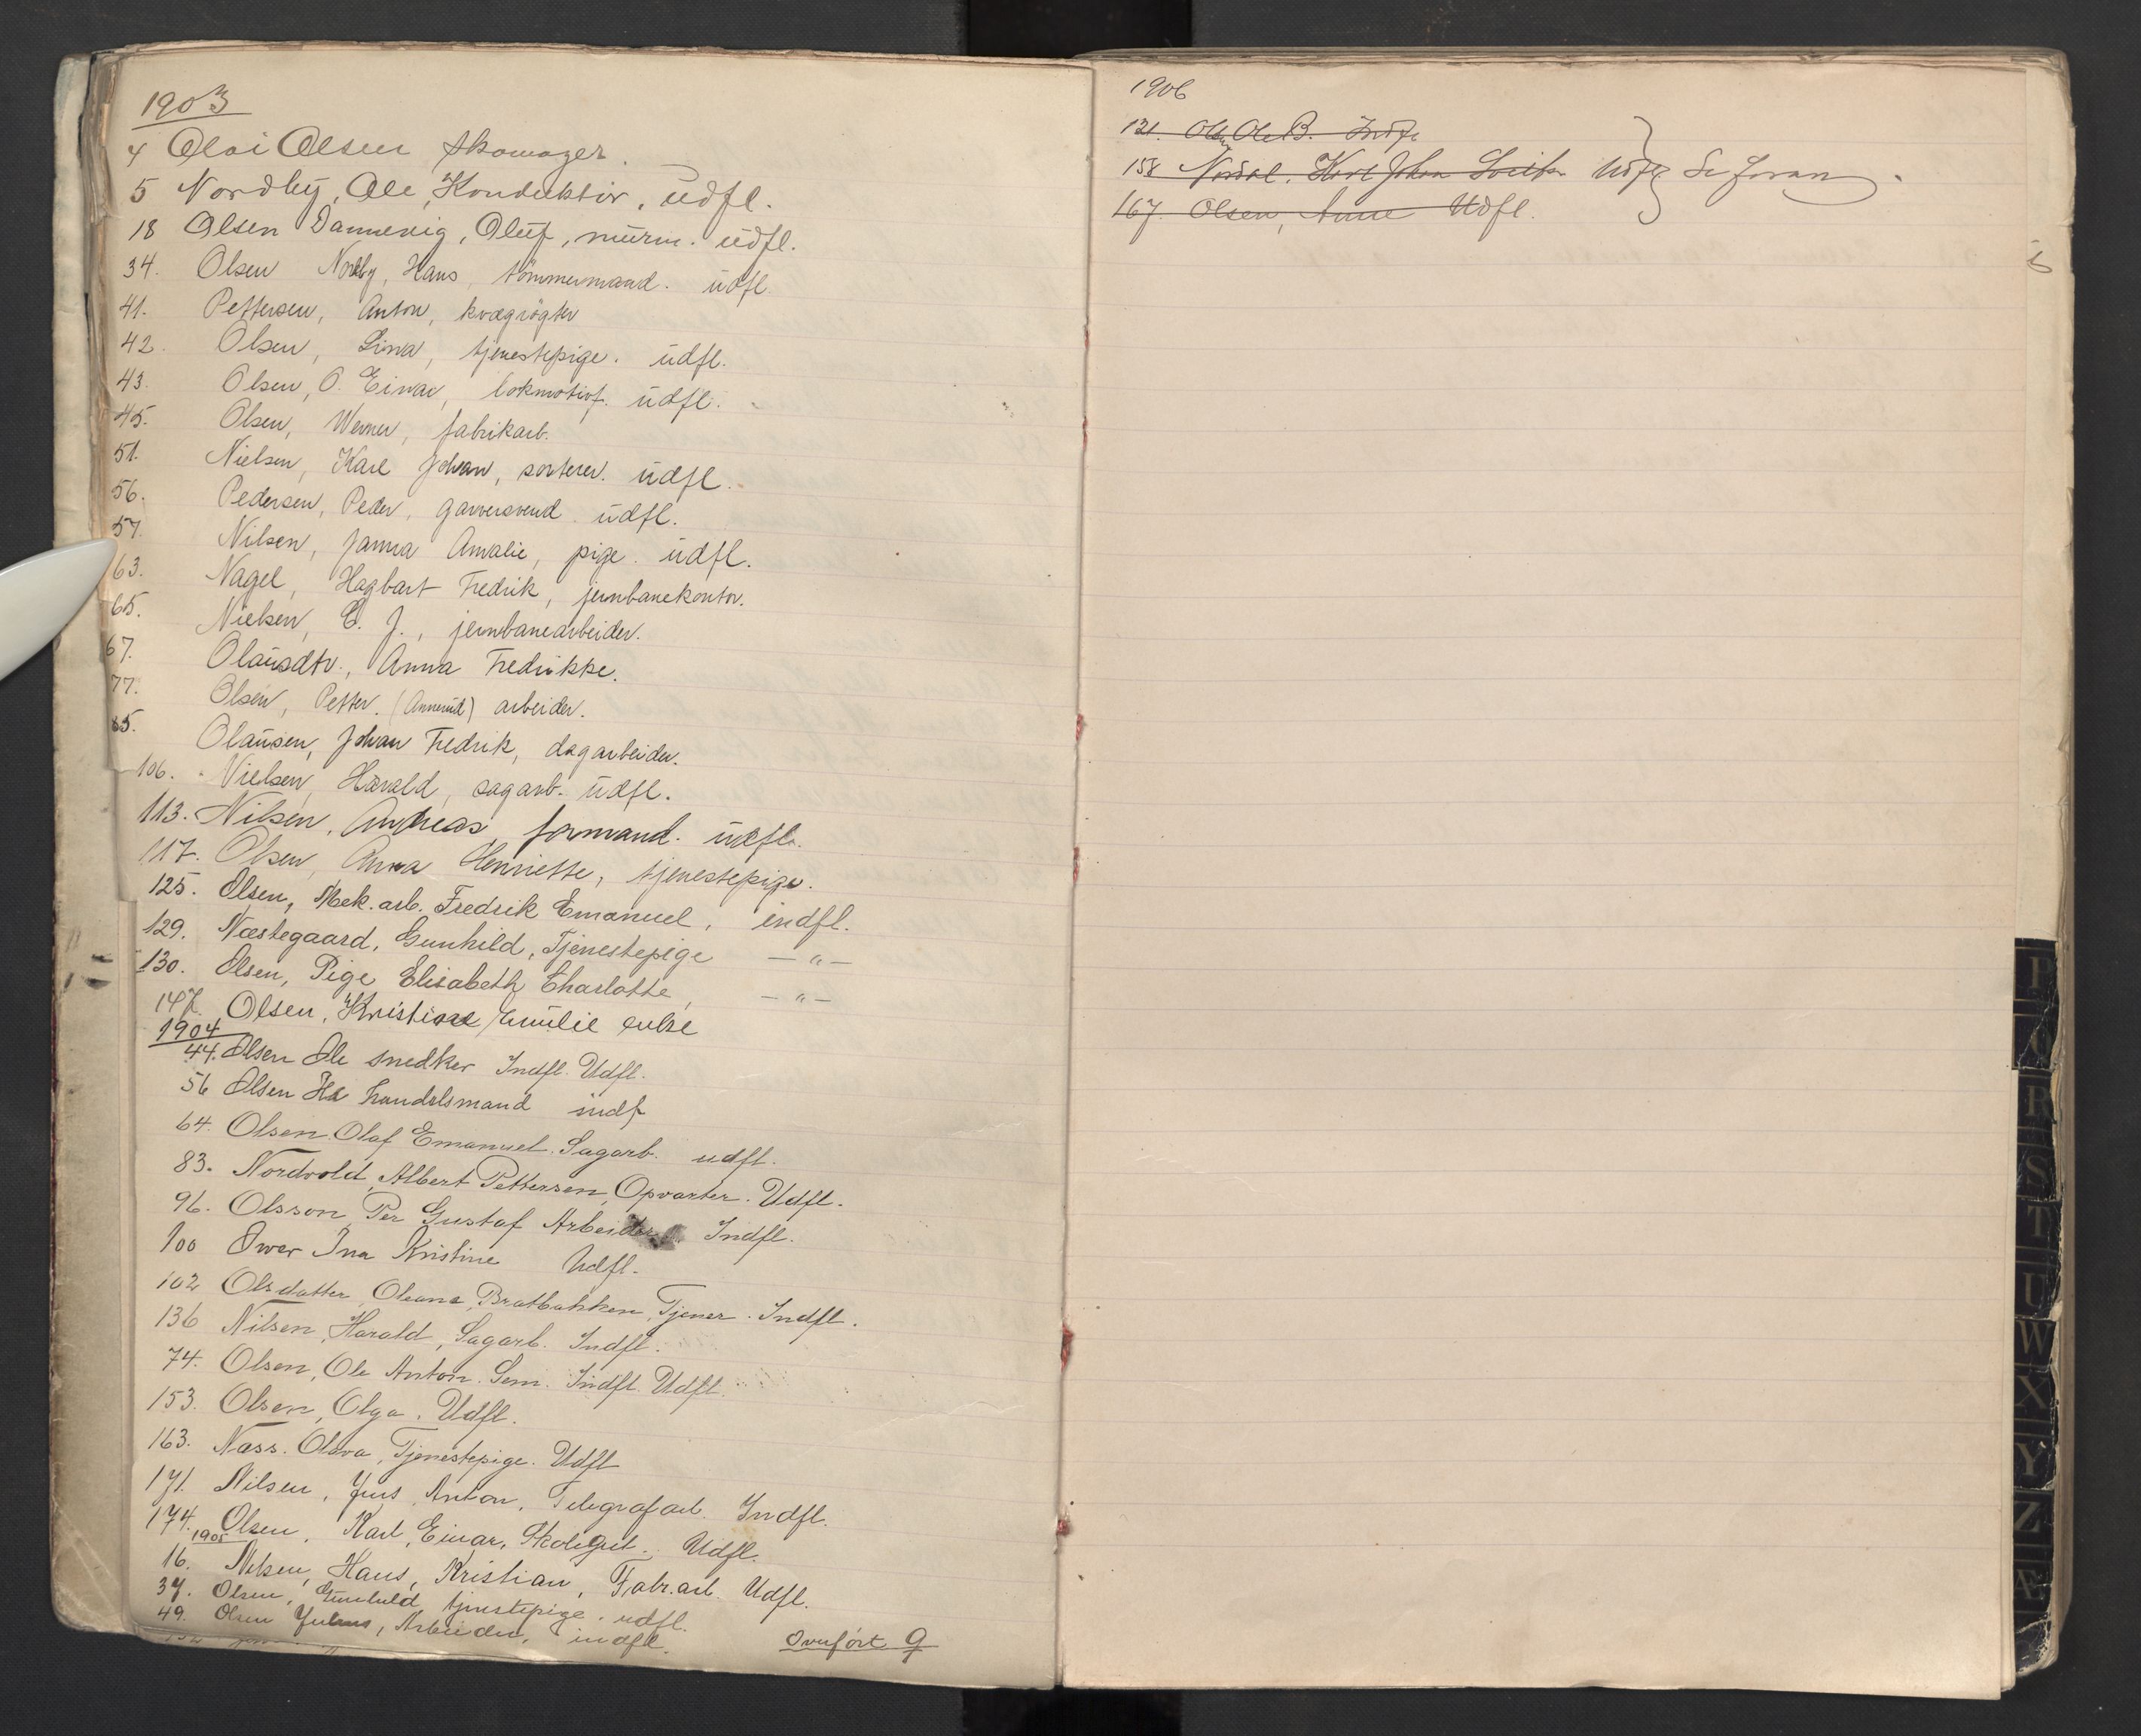 1903
4 Olai Olsen skomager.
5 Nordby, Ole, Konduktör, udfl.
18 Olsen Dannevig, Oluf, murm. udfl.
34. Olsen Nordby, Hans, tömmermand. udfl.
41. Pettersen, Anton, kvægrögter
42. Olsen, Lina, tjenestepige. udfl.
43. Olsen, O. Einar, lokmotivf. udfl.
45. Olsen, Werner, fabrikarb.
51. Nielsen, Karl Johan, sorterer. udfl.
56. Pedersen, Peder, garversvend. udfl.
57. Nilsen, Janna Amalie, pige. udfl.
63. Nagel, Hagbart Fredrik, jernbanekontor.
65. Nielsen, E. J., jernbanearbeider.
67. Olausdtr., Anna Fredrikke.
77. Olsen, Petter. (Annerud) arbeider.
85. Olausen, Johan Fredrik, dagarbeider.
106. Nielsen, Harald, sagarb. udfl.
113. Nilsen, Andreas, formand. udfl.
117. Olsen, Anna Henriette, tjenestepige.
125. Olsen, Mek. arb. Fredrik Emanuel, indfl.
129. Næstegaard, Gunhild, Tjenestepige — " —
130. Olsen, Pige Elisabeth Charlotte, — " —
147. Olsen, Kristiane Emilie enke
1904
44. Olsen Ole snedker Indfl. Udfl.
56 Olsen Ha handelsmand indf
64. Olsen Olaf Emanuel. Sagarb. udfl.
83. Nordvold, Albert Pettersen, Opvarter. Udfl.
96. Olsson, Per Gustaf Arbeider. Indfl.
100 Ower Ina Kristine Udfl.
102 Olsdatter, Oleana, Bratbakken, Tjener. Indfl.
136 Nilsen, Harald, Sagarb. Indfl.
74. Olsen, Ole Anton. Sem. Indfl. Udfl.
153. Olsen, Olga. Udfl.
163. Næss. Olava, Tjenestepige. Udfl
171. Nilsen, Jens Anton, Telegrafarb. Indfl.
174. Olsen, Karl, Einar, Skolegut. Udfl.
1905
16. Nilsen, Hans, Kristian, Fabr.arb. Udfl.
37. Olsen, Gunhild, tjenstepige. udfl.
49. Olsen Julius, Arbeider, indfl.
Overfört 9
1906
121. Olsen Ole B. Indfl
158 Nordal, Karl Johan Udfl Se foran.
167. Olsen, Anne Udfl.
P
R
S
T
U
W
X
Y
Z
Æ